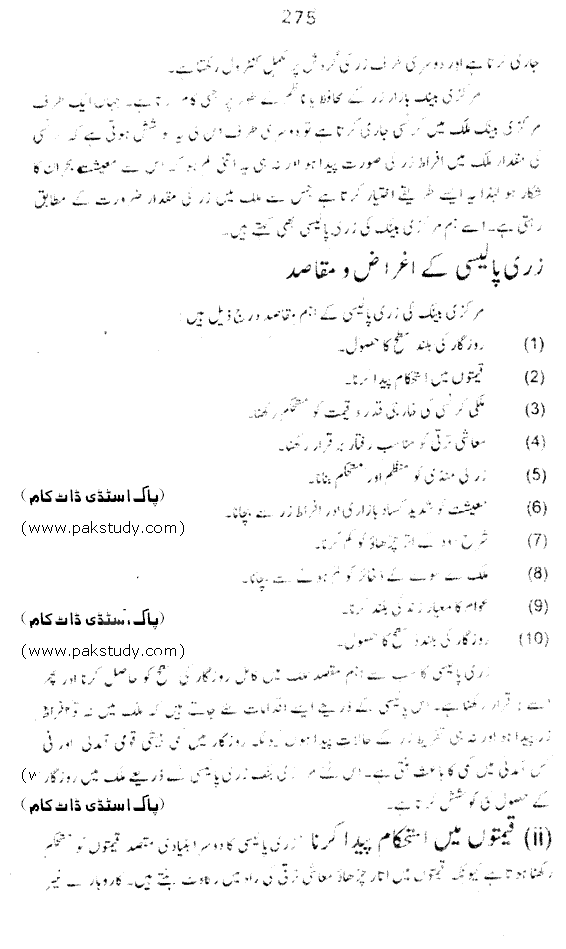 275
جاری کرتا ہے اور دوسری طرف زر کی گردش پر مکمل کنٹرول رکھتا ہے۔
مرکزی بینک بازار زر کے محافظ یا ناظم کے طور پر بھی کام کرتا ہے۔ جہاں ایک طرف
مرکزی بینک ملک میں کرنسی جاری کرتا ہے تو دوسری طرف اس کی یہ کوشش ہوتی ہے کہ کرنسی
کی مقدار ملک میں افراط زر کی صورت پیدا ہو اور نہ ہی یہ اتنی کم ہو کہ اس سے معیشت بحران کا
شکار ہو لہٰذا یہ ایسے طریقے اختیار کرتا ہے جس سے ملک میں زر کی مقدار ضرورت کے مطابق
رہتی ہے۔ اسے ہم مرکزی بینک کی زری پالیسی بھی کہتے ہیں۔
زری پالیسی کے اغراض و مقاصد
مرکزی بینک کی زری پالیسی کے اہم مقاصد درج ذیل ہیں:
(1) روزگار کی بلند سطح کا حصول۔
(2) قیمتوں میں استحکام پیدا کرنا۔
(3) ملکی کرنسی کی خارجی قدر و قیمت کو مستحکم رکھنا۔
(4) معاشی ترقی کو مناسب رفتار پر برقرار رکھنا۔
(5) زر کی منڈی کو منظم اور مستحکم بنانا۔
(پاک اسٹڈی ڈاٹ کام)
(6) معیشت کو شدید کساد بازاری اور افراط زر سے بچانا۔
(www.pakstudy.com)
(7) شرح سود کے اتار چڑھاؤ کو کم کرنا۔
(8) ملک سے سونے کے ذخائر کو کم ہونے سے بچانا۔
(9) عوام کا معیار زندگی بلند کرنا۔
(پاک اسٹڈی ڈاٹ کام)
(10) روزگار کی بلند سطح کا حصول۔
(www.pakstudy.com)
زری پالیسی کا سب سے اہم مقصد ملک میں کامل روزگار کی سطح کو حاصل کرنا اور پھر
اسے برقرار رکھنا ہے۔ اس پالیسی کے ذریعے ایسے اقدامات کئے جاتے ہیں کہ ملک میں نہ تو افراط
زر پیدا ہو اور نہ ہی تفریط زر کے حالات پیدا ہوں کیونکہ روزگار میں کمی قومی آمدنی اور فی
کس آمدنی میں کمی کا باعث بنتی ہے۔ اس لئے مرکزی بینک زری پالیسی کے ذریعے ملک میں روزگار (w
کے حصول کی کوشش کرتا ہے۔
(پاک اسٹڈی ڈاٹ کام)
(ii) قیمتوں میں استحکام پیدا کرنا زری پالیسی کا دوسرا بنیادی مقصد قیمتوں کو مستحکم
رکھنا ہوتا ہے کیونکہ قیمتوں میں اتار چڑھاؤ معاشی ترقی کی راہ میں رکاوٹ بنتے ہیں۔ کاروبار کے غیر